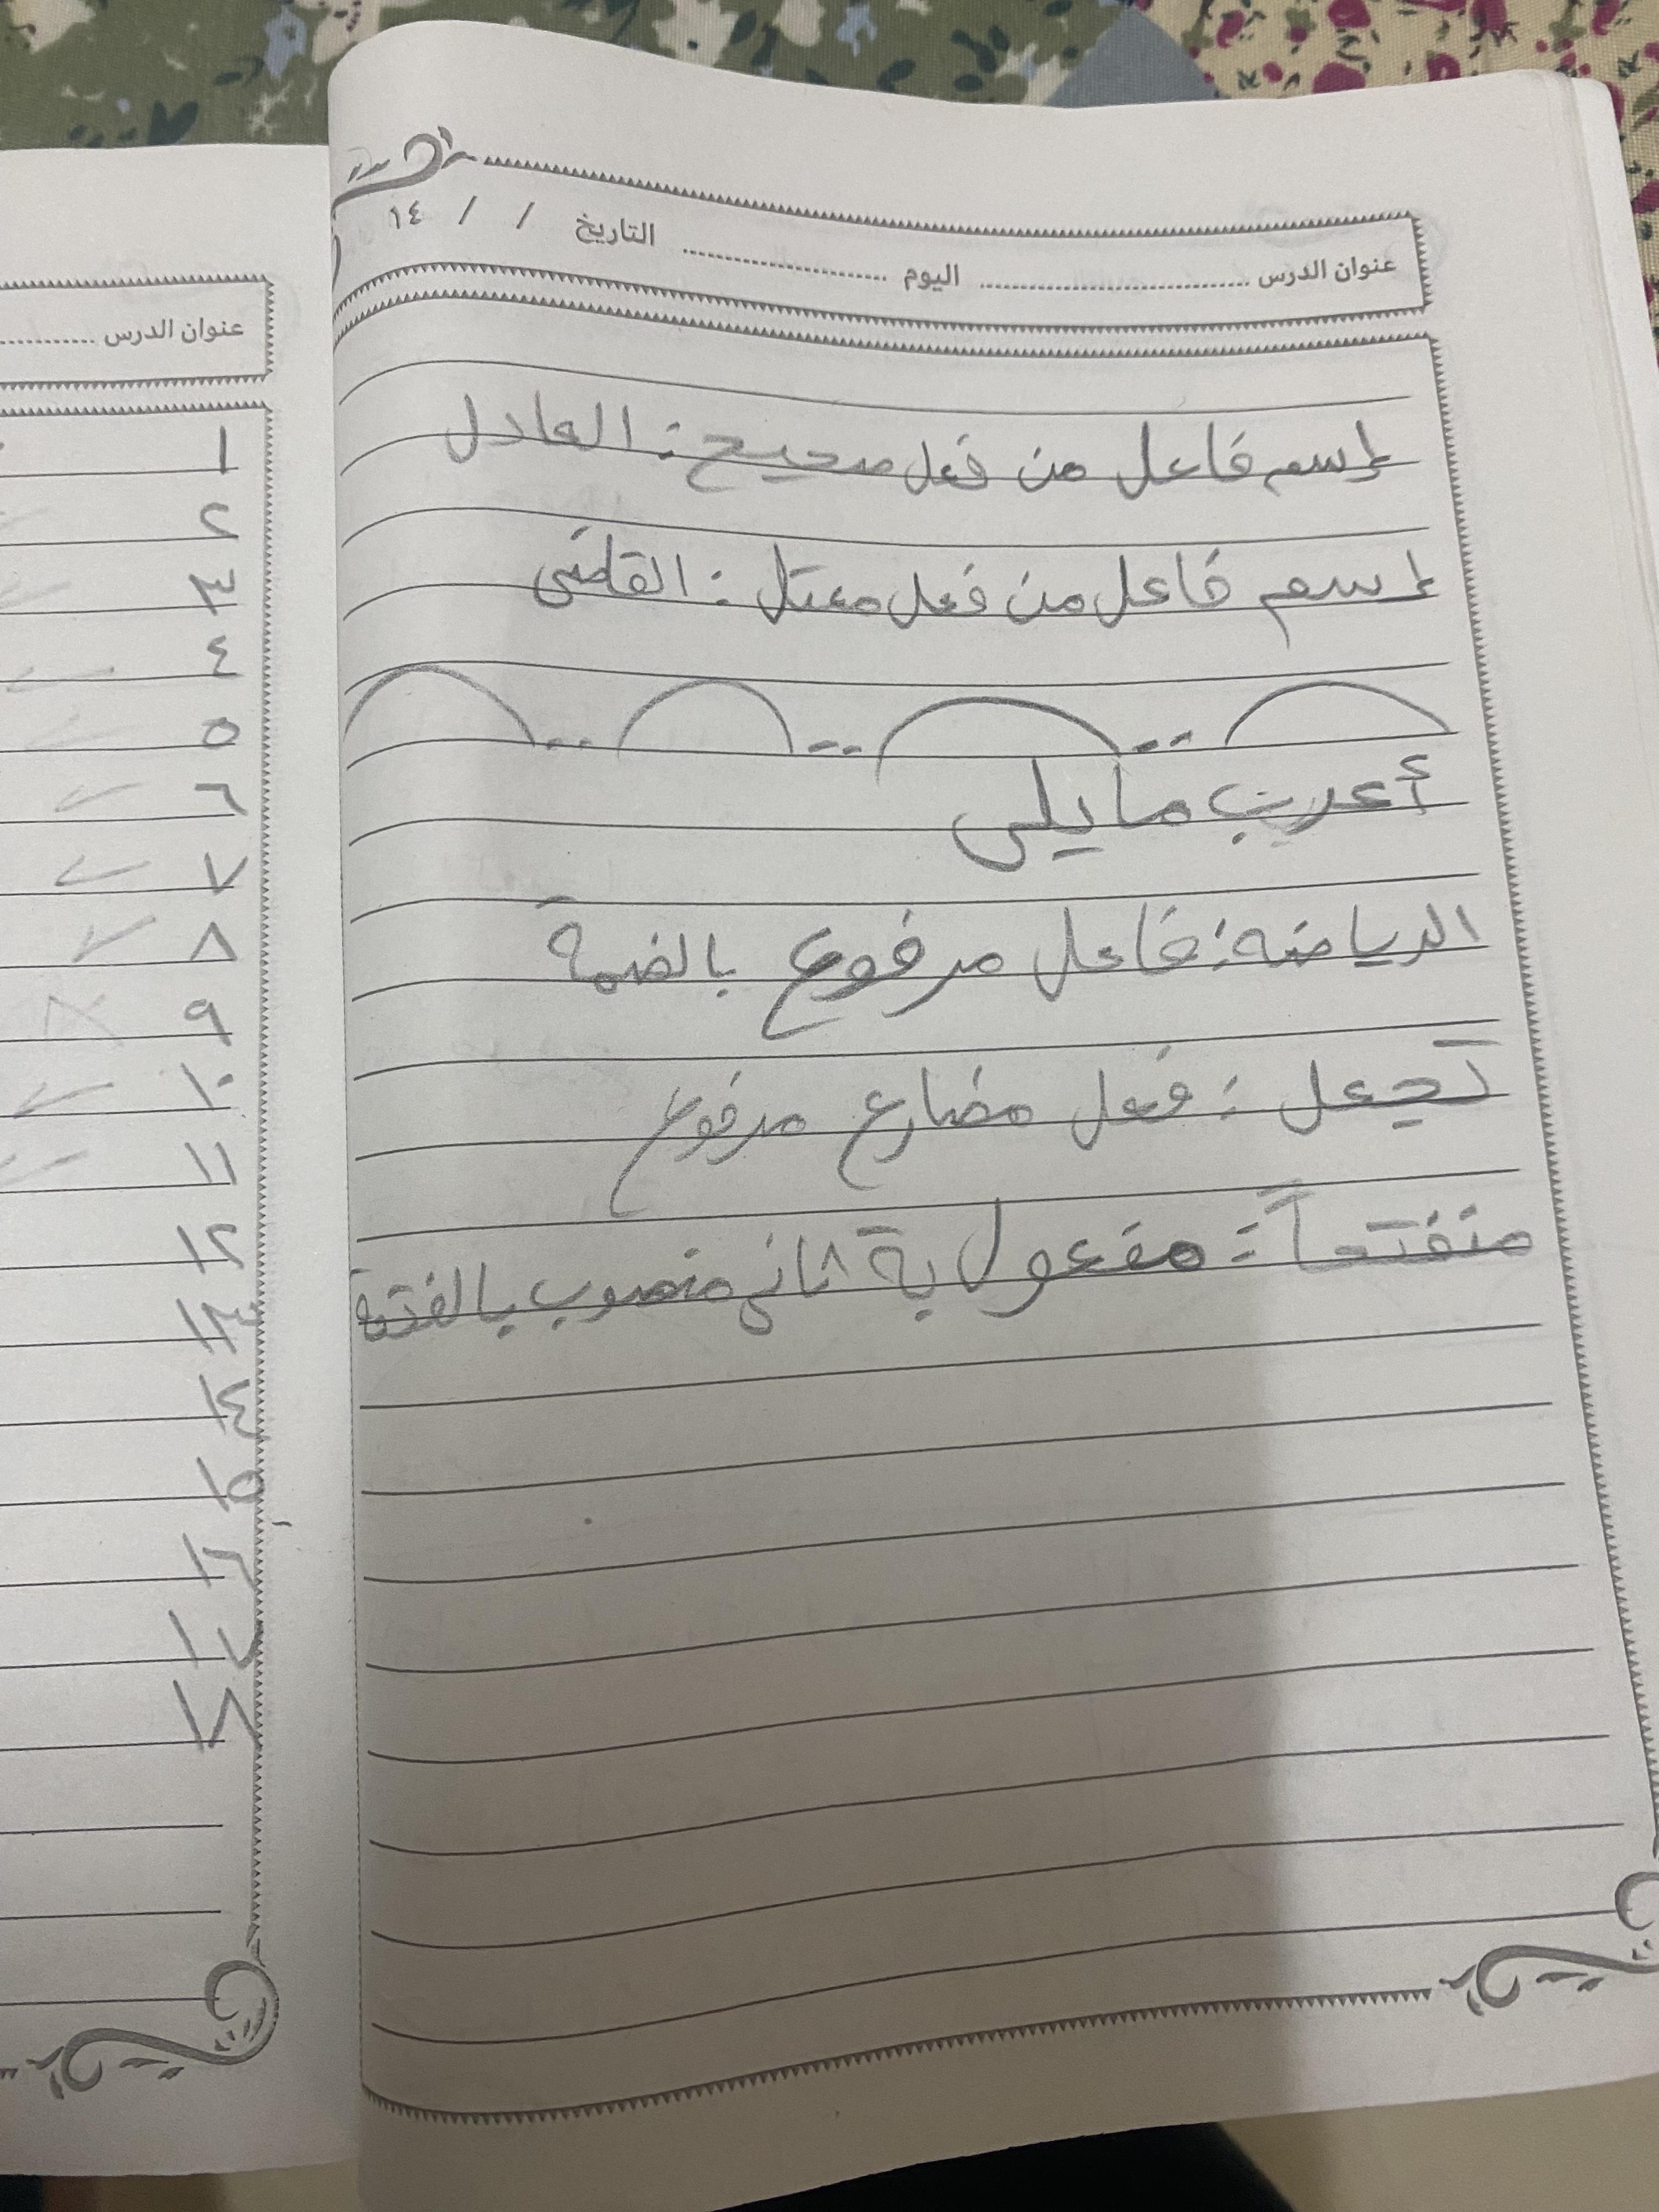 عنوان الدرس ........ اليوم ........ التاريخ / / ١٤
إسم فاعل من فعل صحيح : العادل
إسم فاعل من فعل معتل : القاضى
أعرب ما يلى
الرياضه : فاعل مرفوع بالضمة
تجعل : فعل مضارع مرفوع
متفتحاً : مفعول بة ثانى منصوب بالفتحة
عنوان الدرس ........
١
٢
٣
٤
٥
٦
٧
٨
٩
١٠
١١
١٢
١٣
١٤
١٥
١٦
١٧
١٨